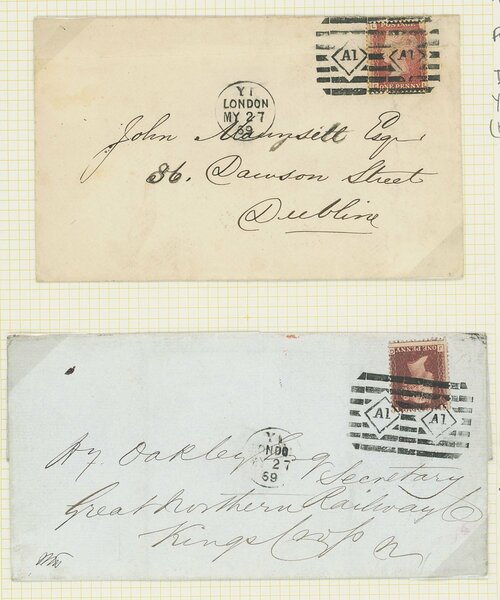 A1 A1
ONE PENNY
Y1
LONDON
MY 27
59
John Maunsell Esqr
86. Dawson Street
Dubline
ONE PENNY
A1 A1
Y1
LONDON
27
59
Hy. Oakley Esq
Secretary
Great Northern Railway Co
Kings Cross
N